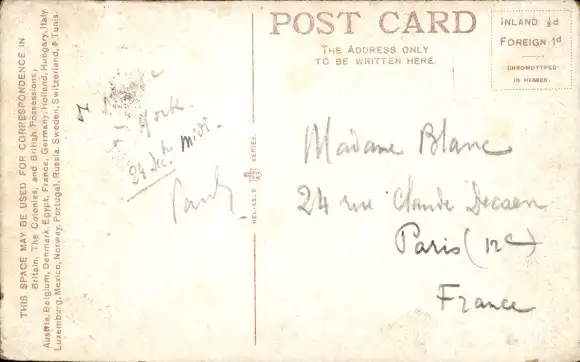 POST CARD
THE ADDRESS ONLY
TO BE WRITTEN HERE.
INLAND ½d
FOREIGN 1d
CHROMOTYPED
IN HESSEN.
THIS SPACE MAY BE USED FOR CORRESPONDENCE IN
Britain, The Colonies, and British Possessions;
Austria, Belgium, Denmark, Egypt, France, Germany, Holland, Hungary, Italy
Luxemburg, Mexico, Norway, Portugal, Russia, Sweden, Switzerland, & Tunis.
York.
24 Dec. midi.
RELIABLE
SERIES.
Madame Blanc
24 rue Claude Decaen
Paris (12e)
France